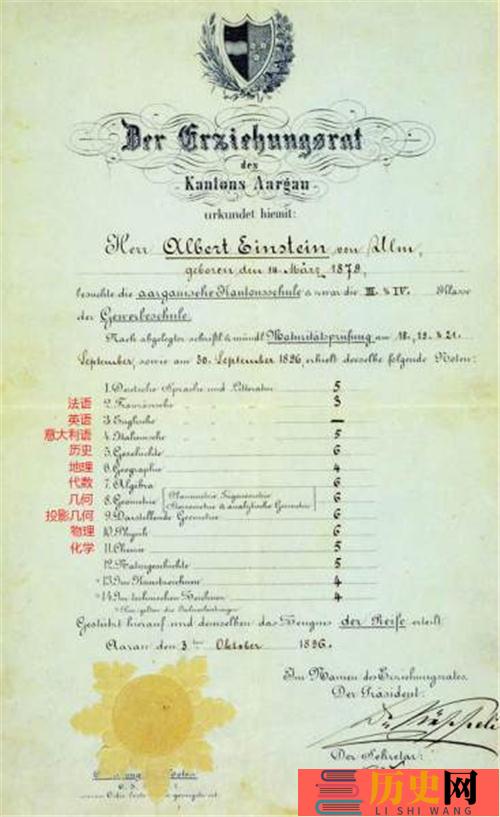 Der Erziehungsrat
des
Kantons Aargau
urkundet hiemit:
Herr Albert Einstein von Ulm,
geboren den 14. März 1879,
besuchte die aargauische Kantonsschule & zwar die III. & IV. Klasse
der Gewerbeschule.
Nach abgelegter schriftl. & mündl. Maturitätsprüfung am 18., 19. & 21.
September, sowie am 30. September 1896, erhielt derselbe folgende Noten:
1. Deutsche Sprache und Litteratur 5
法语 2. Französische 3
英语 3. Englische —
意大利语 4. Italienische 5
历史 5. Geschichte 6
地理 6. Geographie 4
代数 7. Algebra 6
几何 8. Geometrie (Planimetrie, Trigonometrie 6
Stereometrie & analytische Geometrie)
投影几何 9. Darstellende Geometrie 6
物理 10. Physik 6
化学 11. Chemie 5
12. Naturgeschichte 5
*13. Im Kunstzeichnen 4
*14. Im technischen Zeichnen 4
*Hier gelten die Jahresleistungen.
Gestützt hierauf wird demselben das Zeugnis der Reife erteilt.
Aarau den 3ten Oktober 1896.
Im Namen des Erziehungsrates,
Der Präsident:
Der Sekretär:
历史网
LI SHI WANG